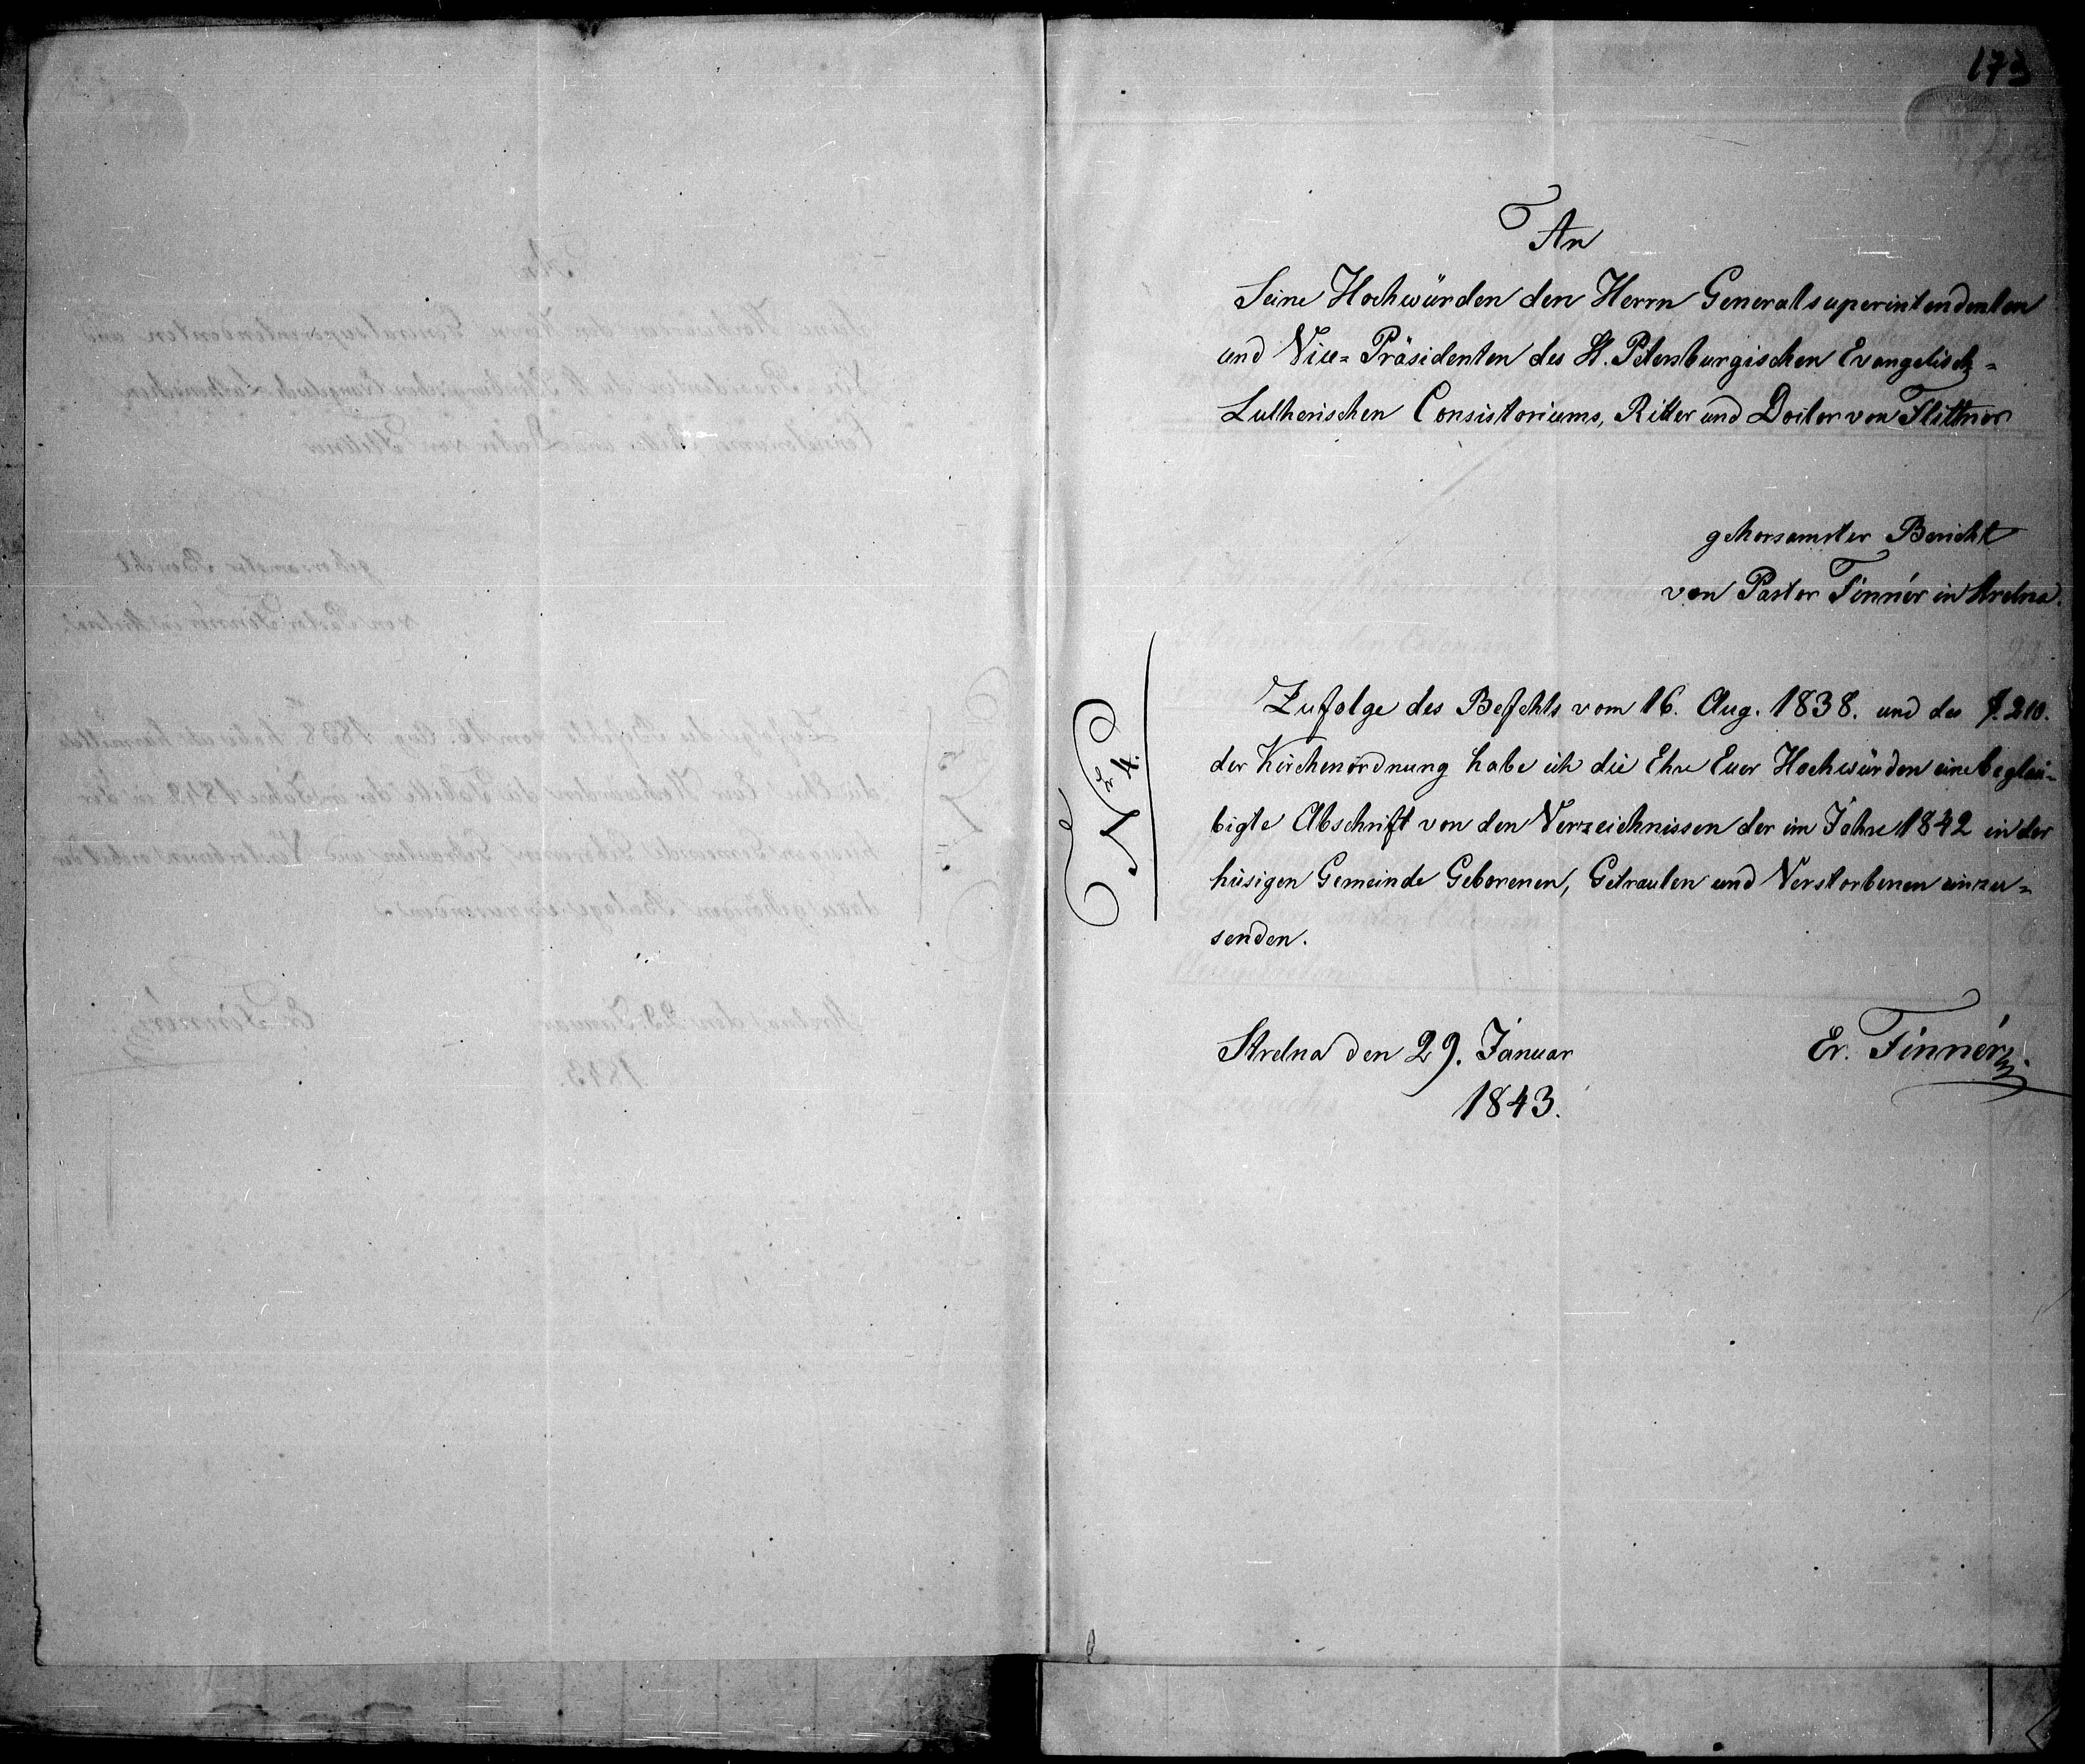 173
An
Seine Hochwürden den Herrn Generalsuperintendenten
und Vice=Präsidenten des St. Petersburgischen Evangelisch=
Lutherischen Consistoriums, Ritter und Doctor von Flittner
gehorsamster Bericht
von Pastor Finnér in Strelna.
Zufolge des Befehls vom 16. Aug. 1838. und des §. 210.
der Kirchenordnung habe ich die Ehre Euer Hochwürden eine beglau=
bigte Abschrift von den Verzeichnissen der im Jahre 1842 in der
hiesigen Gemeinde Geborenen, Getrauten und Verstorbenen einzu=
senden.
№ 4.
Strelna den 29. Januar
1843.
Er. Finnér